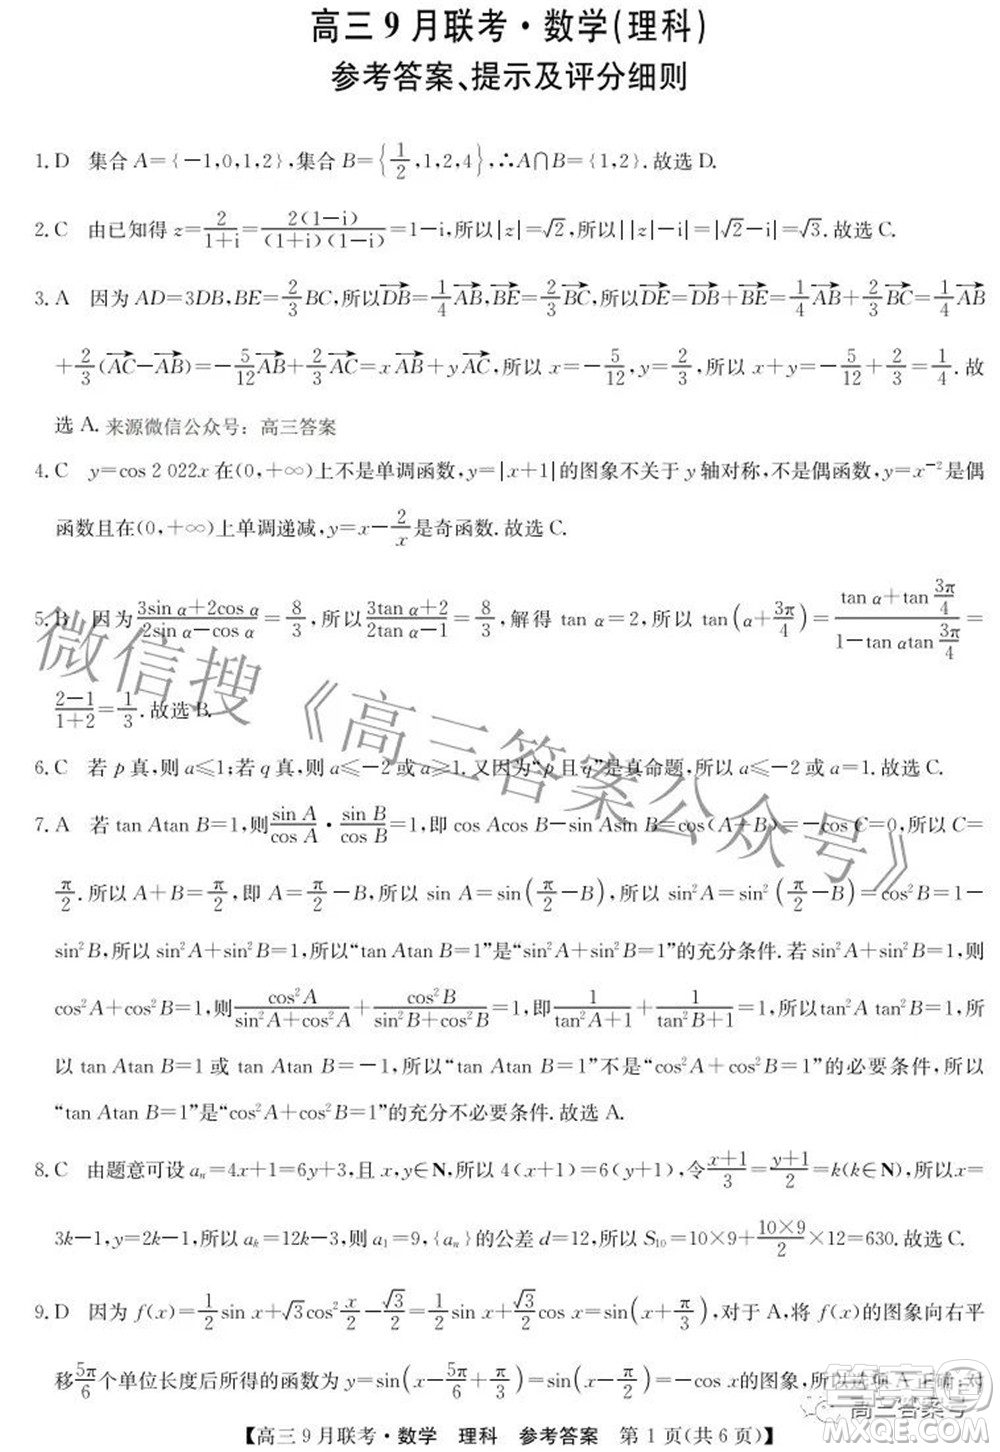 高三9月联考·数学(理科)
参考答案、提示及评分细则
1.D 集合 A={-1,0,1,2},集合 B={1/2,1,2,4},∴A∩B={1,2}.故选 D.
2.C 由已知得 z=2/(1+i)=2(1-i)/((1+i)(1-i))=1-i,所以|z|=√2,所以||z|-i|=|√2-i|=√3.故选 C.
3.A 因为 AD=3DB,BE=2/3BC,所以DB→=1/4AB→,BE→=2/3BC→,所以DE→=DB→+BE→=1/4AB→+2/3BC→=1/4AB→
+2/3(AC→-AB→)=-5/12AB→+2/3AC→=xAB→+yAC→,所以 x=-5/12,y=2/3,所以 x+y=-5/12+2/3=1/4.故
选 A. 来源微信公众号：高三答案
4.C y=cos 2 022x 在(0,+∞)上不是单调函数,y=|x+1|的图象不关于 y 轴对称,不是偶函数,y=x⁻²是偶
函数且在(0,+∞)上单调递减,y=x-2/x是奇函数.故选 C.
5.B 因为(3sin α+2cos α)/(2sin α-cos α)=8/3,所以(3tan α+2)/(2tan α-1)=8/3,解得 tan α=2,所以 tan(α+3π/4)=(tan α+tan 3π/4)/(1-tan αtan 3π/4)=
(2-1)/(1+2)=1/3.故选 B.
6.C 若 p 真,则 a≤1;若 q 真,则 a≤-2 或 a≥1.又因为“p 且 q”是真命题,所以 a≤-2 或 a=1.故选 C.
7.A 若 tan Atan B=1,则sin A/cos A·sin B/cos B=1,即 cos Acos B-sin Asin B=cos(A+B)=-cos C=0,所以 C=
π/2.所以 A+B=π/2,即 A=π/2-B,所以 sin A=sin(π/2-B),所以 sin²A=sin²(π/2-B)=cos²B=1-
sin²B,所以 sin²A+sin²B=1,所以“tan Atan B=1”是“sin²A+sin²B=1”的充分条件.若 sin²A+sin²B=1,则
cos²A+cos²B=1,则cos²A/(sin²A+cos²A)+cos²B/(sin²B+cos²B)=1,即1/(tan²A+1)+1/(tan²B+1)=1,所以tan²A tan²B=1,所
以 tan Atan B=1 或 tan Atan B=-1,所以“tan Atan B=1”不是“cos²A+cos²B=1”的必要条件.所以
“tan Atan B=1”是“cos²A+cos²B=1”的充分不必要条件.故选 A.
8.C 由题意可设 aₙ=4x+1=6y+3,且 x,y∈N,所以 4(x+1)=6(y+1),令(x+1)/3=(y+1)/2=k(k∈N),所以x=
3k-1,y=2k-1.所以 aₖ=12k-3,则 a₁=9,{aₙ}的公差 d=12,所以 S₁₀=10×9+(10×9)/2×12=630.故选 C.
9.D 因为 f(x)=1/2sin x+√3cos²x/2-√3/2=1/2sin x+√3/2cos x=sin(x+π/3),对于 A,将 f(x)的图象向右平
移5π/6个单位长度后所得的函数为 y=sin(x-5π/6+π/3)=sin(x-π/2)=-cos x的图象,所以选项 A 正确;对
【高三9月联考·数学 理科 参考答案 第1页(共6页)】
微信搜《高三答案公众号》
高三答案号
答案圈
MXQE.COM